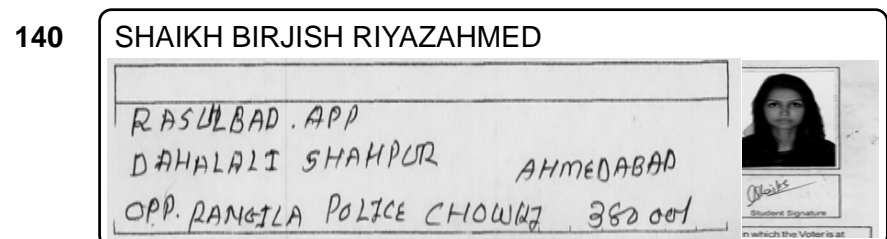 140 SHAIKH BIRJISH RIYAZAHMED
RASULBAD. APP
DAHALALI SHAHPUR AHMEDABAD
OPP. RANGILA POLICE CHOWKI 380 001
Student Signature
n which the Voter is at